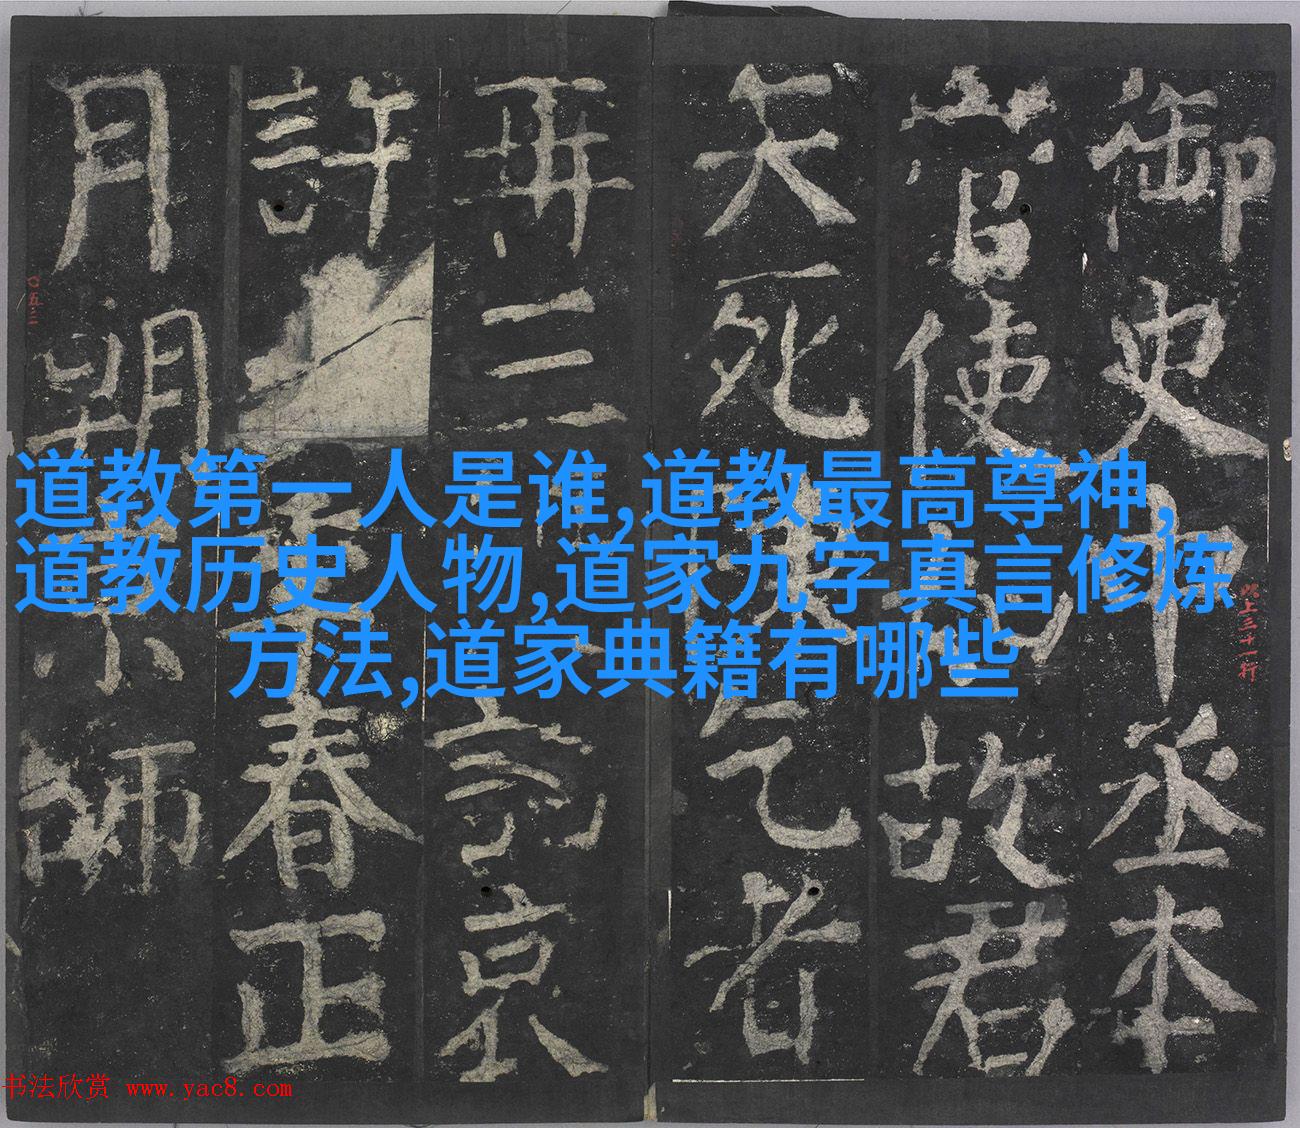 道教第一人是谁,道教最高尊神,
道教历史人物,道家九字真言修炼
方法,道家典籍有哪些
御史中丞本
使故君
死乞者
再三京
許春正
月朔師
此上三十一行
〇五三
书法欣赏 www.yac8.com